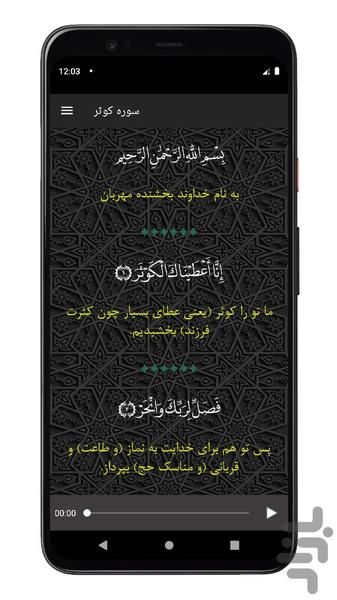 12:03
سوره کوثر
بِسْمِ اللَّهِ الرَّحْمَٰنِ الرَّحِيمِ
به نام خداوند بخشنده مهربان
إِنَّا أَعْطَيْنَاكَ الْكَوْثَرَ ﴿١﴾
ما تو را کوثر (یعنی عطای بسیار چون کثرت
فرزند) بخشیدیم.
فَصَلِّ لِرَبِّكَ وَانْحَرْ ﴿٢﴾
پس تو هم برای خدایت به نماز (و طاعت) و
قربانی (و مناسک حج) بپرداز
00:00
بازار